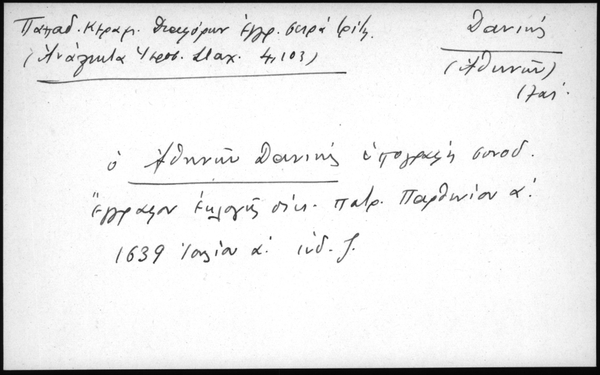 Παπαδ. Κεραμ. Διαφόρων ἐγγρ. σειρά τρίτη.
(Ἀνάλεκτα Ἱεροσ. Σταχ. 4, 103)
Δανιήλ
(Ἀθηνῶν)
17 αι.
ὁ Ἀθηνῶν Δανιήλ ὑπογραφή συνοδ.
ἔγγραφον ἐκλογῆς οἰκ. πατρ. Παρθενίου α΄.
1639 Ἰουλίου α΄. ἰνδ. ζ.